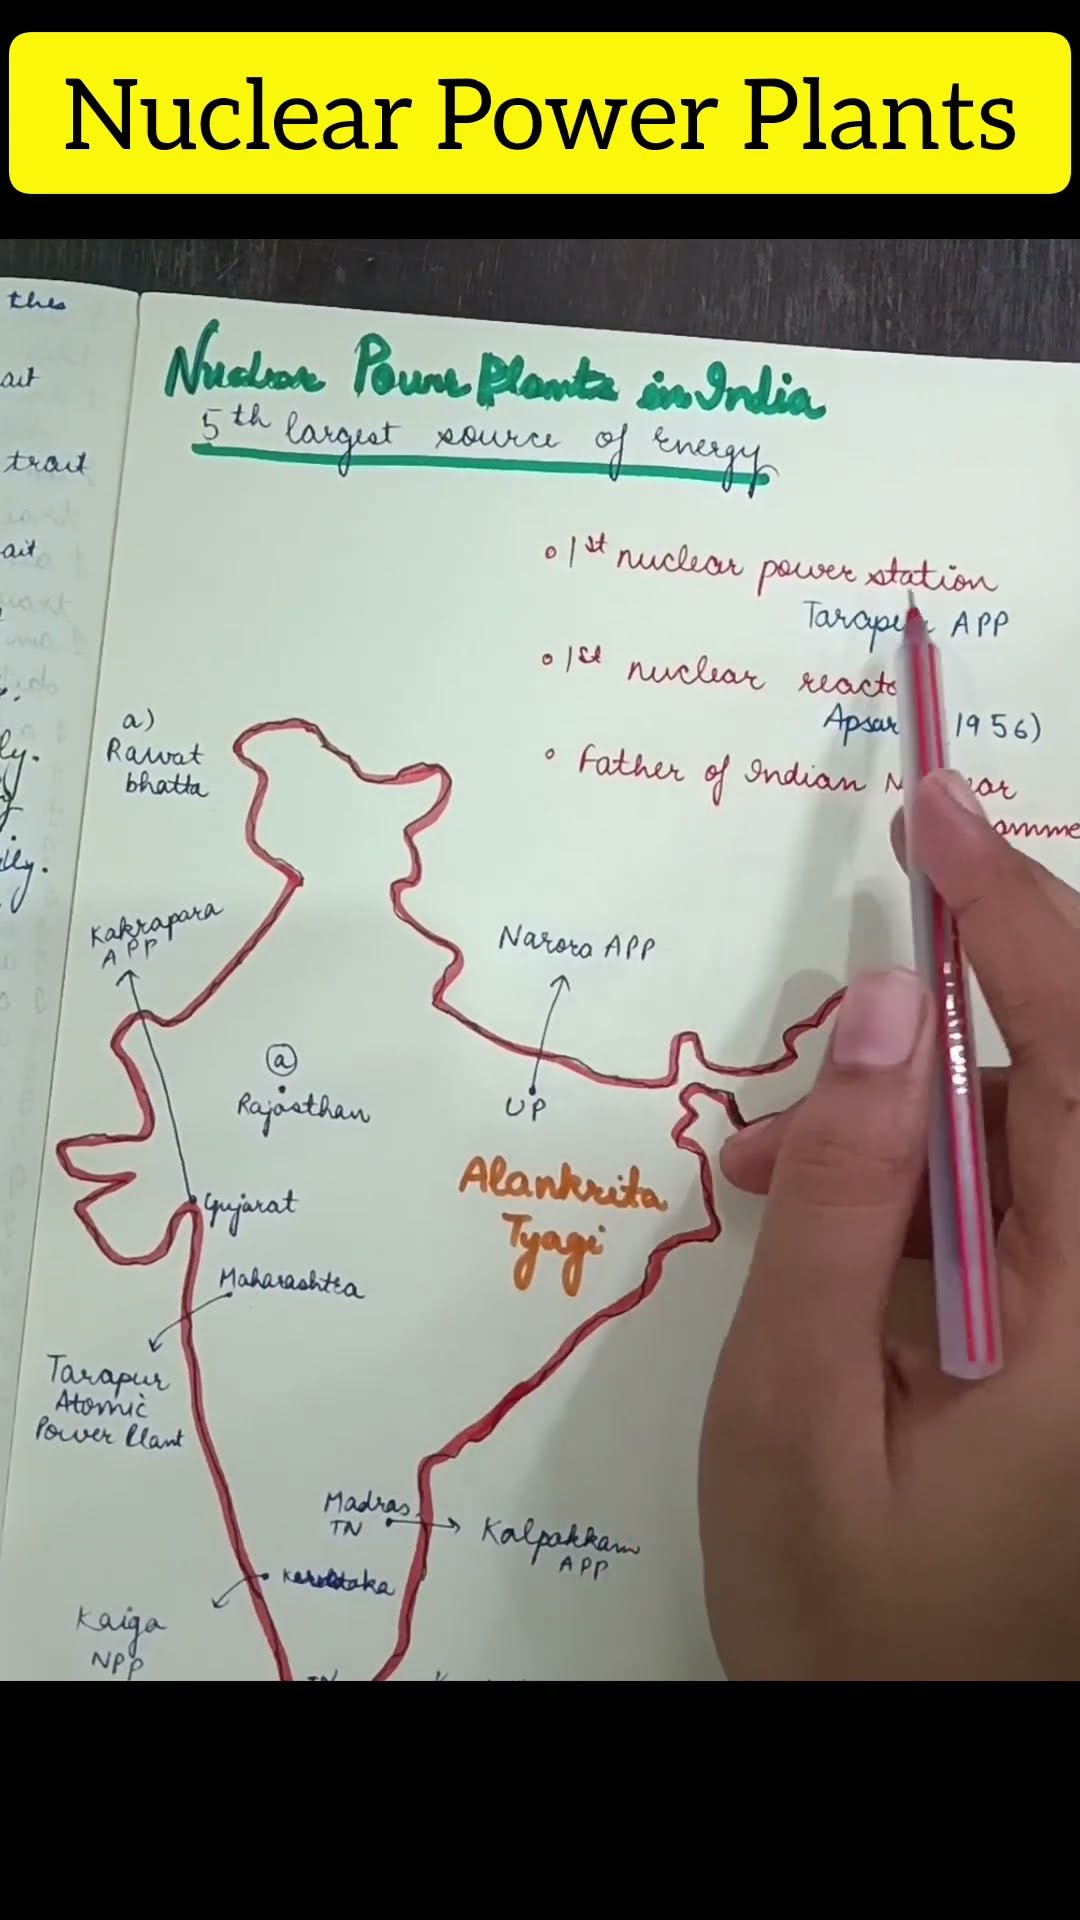 Nuclear Power Plants
thes
ait
trait
ait
ly.
lly.
Nuclear Power Plants in India
5th largest source of Energy
• 1st nuclear power station
Tarapur APP
• 1st nuclear reacto
Apsar 1956)
• Father of Indian N ar
amme
a)
Rawat
bhatta
Kakrapara
APP
Narora APP
a
Rajasthan
UP
Alankrita
Tyagi
Gujarat
Maharashtra
Tarapur
Atomic
Power Plant
Madras
TN
Kalpakkam
APP
Karnataka
Kaiga
NPP